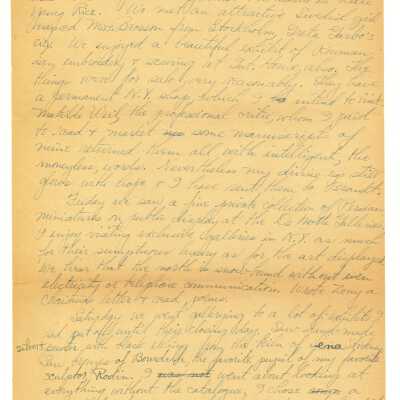 Rice. We met an attractive Swedish girl
named Miss Brosson from Stockholm, Greta Garbo's
city. We enjoyed a beautiful exhibit of Rouman-
ian embroidery & weaving at Int. House, also. The
things were for sale, very reasonably. They have
a permanent N.Y. shop, which I intend to visit.
the professional critic, whom I paid
to read & market some manuscripts of
mine returned them all with intelligent, tho
moneyless, words. Nevertheless my divine ego still
glows with hope & I have sent them to
Friday we saw a fine private collection of Persian
miniatures on public display at the Galleries.
I enjoy visiting exclusive galleries in N.Y. as much
for their sumptuous luxury as for the art displayed.
We hear that the north is snow-bound without even
electricity or telephone communication. Wrote
Christmas letter & read, poems.
Saturday we went gallerying to a lot of exhibits I
put off until their closing day. Saw hand-made
silver
from the kiln of
of Bourdelle, the favorite pupil of my favorite
sculptor, Rodin. I was not went about looking at
everything without the catalogue, I chose a